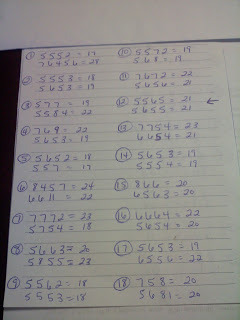 ① 5552 = 17
76456 = 28
② 5553 = 18
5653 = 19
③ 577 = 19
5584 = 22
④ 769 = 22
5653 = 19
⑤ 5652 = 18
557 = 17
⑥ 8457 = 24
6411 = 22
⑦ 7772 = 23
5754 = 18
⑧ 5663 = 20
5855 = 23
⑨ 5562 = 18
5553 = 18
⑩ 5572 = 19
568 = 19
⑪ 7672 = 22
5656 = 21
⑫ 5565 = 21 ←
5655 = 21
⑬ 7754 = 23
6654 = 21
⑭ 5653 = 19
5554 = 19
⑮ 866 = 20
6563 = 20
⑯ 6664 = 22
5654 = 20
⑰ 5653 = 19
6556 = 22
⑱ 758 = 20
5681 = 20